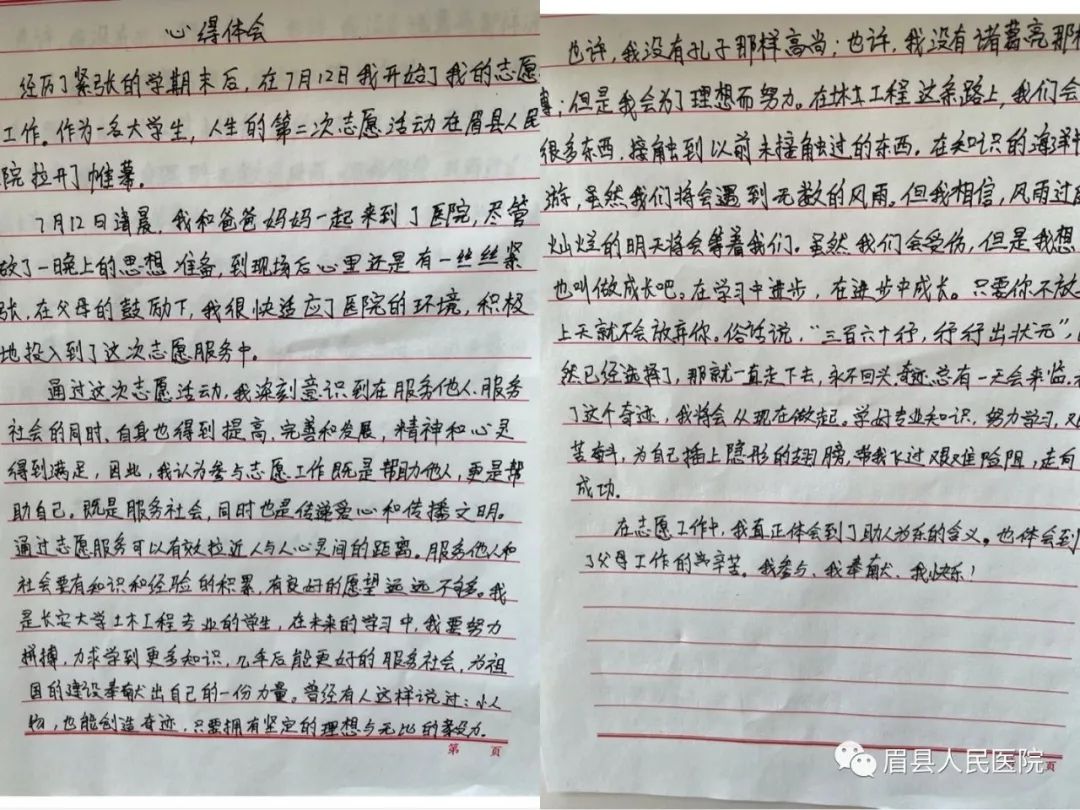 心得体会
经历了紧张的学期末后，在7月12日我开始了我的志愿
工作。作为一名大学生，人生的第二次志愿活动在眉县人民
院拉开了帷幕。
7月12日清晨，我和爸爸妈妈一起来到了医院，尽管
做了一晚上的思想准备，到现场后心里还是有一丝丝紧
张，在父母的鼓励下，我很快适应了医院的环境，积极
地投入到了这次志愿服务中。
通过这次志愿活动，我深刻意识到在服务他人、服务
社会的同时、自身也得到提高、完善和发展，精神和心灵
得到满足，因此，我认为参与志愿工作既是帮助他人，更是帮
助自己。既是服务社会，同时也是传递爱心和传播文明。
通过志愿服务可以有效拉近人与人心灵间的距离。服务他人和
社会要有知识和经验的积累，有良好的愿望远远不够。我
是长安大学土木工程专业的学生，在未来的学习中，我要努力
拼搏，力求学到更多知识，几年后能更好的服务社会，为祖
国的建设奉献出自己的一份力量。曾经有人这样说过：小人
物，也能创造奇迹，只要拥有坚定的理想与无比的毅力。
第 页
也许，我没有孔子那样高尚；也许，我没有诸葛亮那样
博；但是我会为了理想而努力。在土木工程这条路上，我们会
很多东西，接触到以前未接触过的东西。在知识的海洋中
游，虽然我们将会遇到无数的风雨。但我相信，风雨过后
灿烂的明天将会等着我们。虽然我们会受伤，但是我想
也叫做成长吧。在学习中进步，在进步中成长。只要你不放
上天就不会放弃你。俗话说，“三百六十行，行行出状元”，
然已经选择了，那就一直走下去，永不回头，奇迹总有一天会来临，
了这个奇迹，我将会从现在做起。学好专业知识，努力学习，
苦奋斗，为自己插上隐形的翅膀，带我飞过艰难险阻，走向
成功。
在志愿工作中，我真正体会到了助人为乐的含义。也体会到
了父母工作的辛苦。我参与、我奉献、我快乐！
页
眉县人民医院